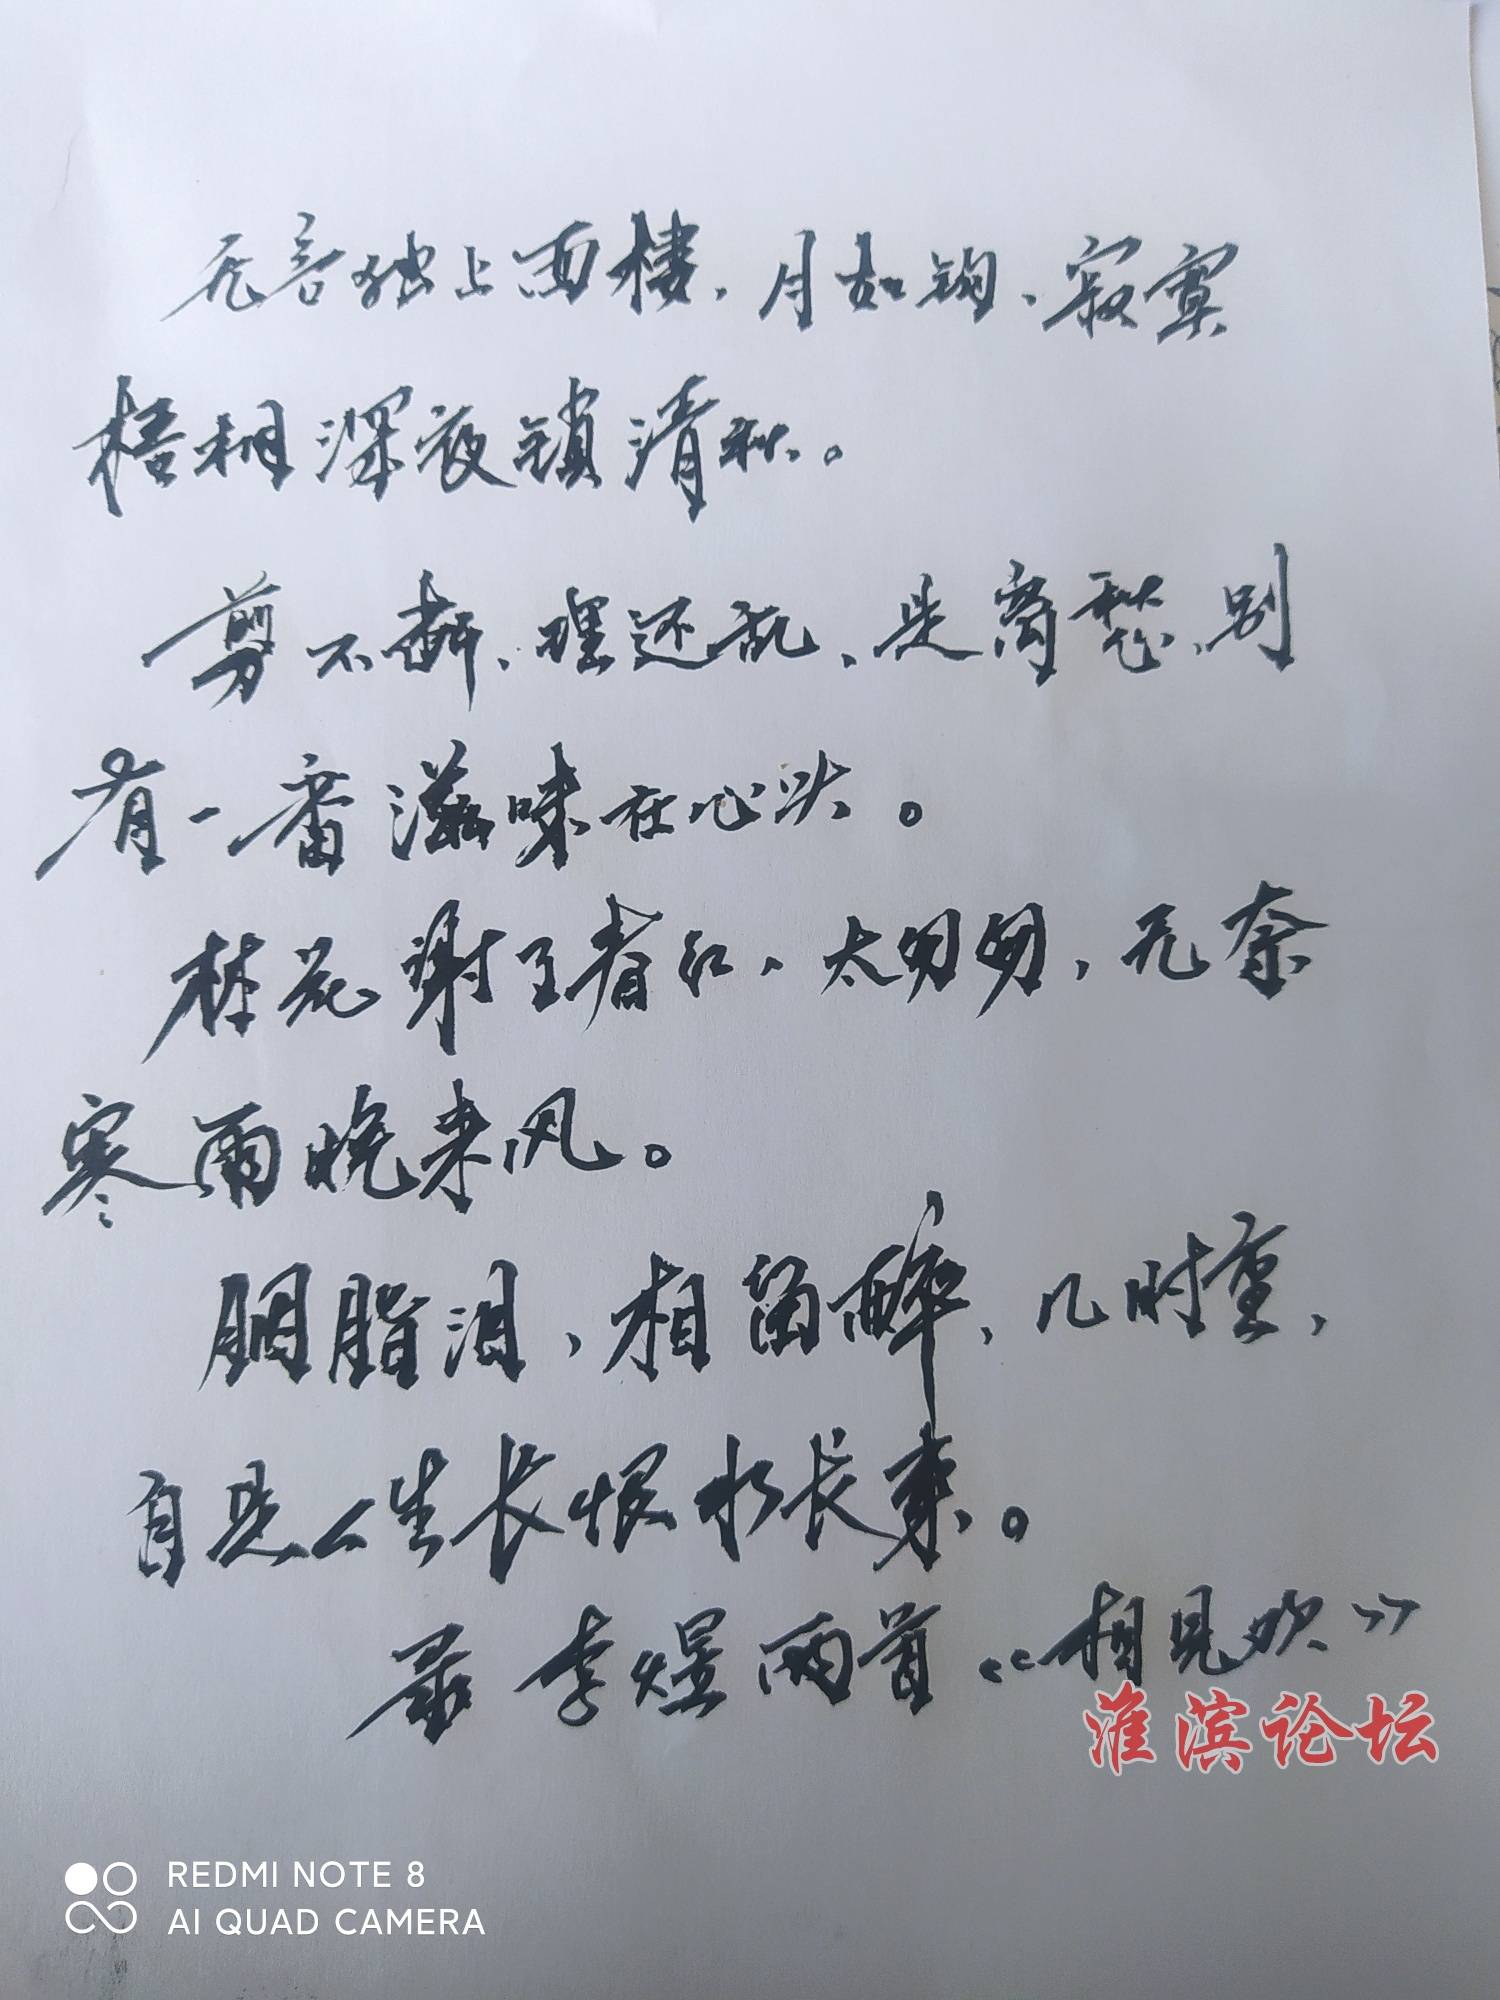 无言独上西楼，月如钩，寂寞
梧桐深夜锁清秋。
剪不断，理还乱，是离愁，别
有一番滋味在心头。
林花谢了春红，太匆匆，无奈
寒雨晚来风。
胭脂泪，相留醉，几时重，
自是人生长恨水长东。
录李煜两首《相见欢》
淮滨论坛
REDMI NOTE 8
AI QUAD CAMERA